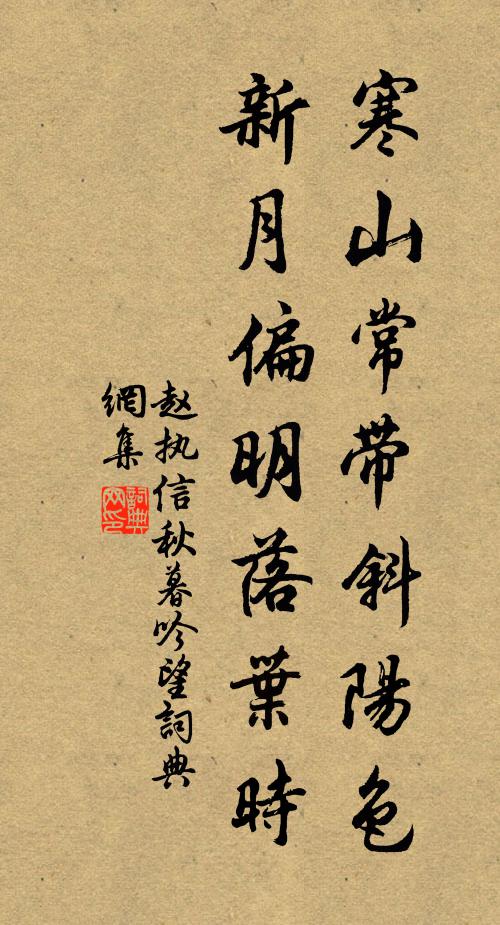 寒山常带斜陽色
新月偏明落葉時
赵执信秋暮吟望詞典
網集
詞典
网印